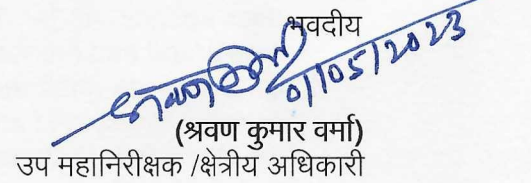 भवदीय
01/05/2023
(श्रवण कुमार वर्मा)
उप महानिरीक्षक /क्षेत्रीय अधिकारी